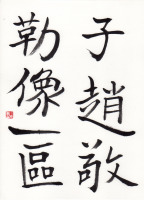 子趙敬
勒像一區